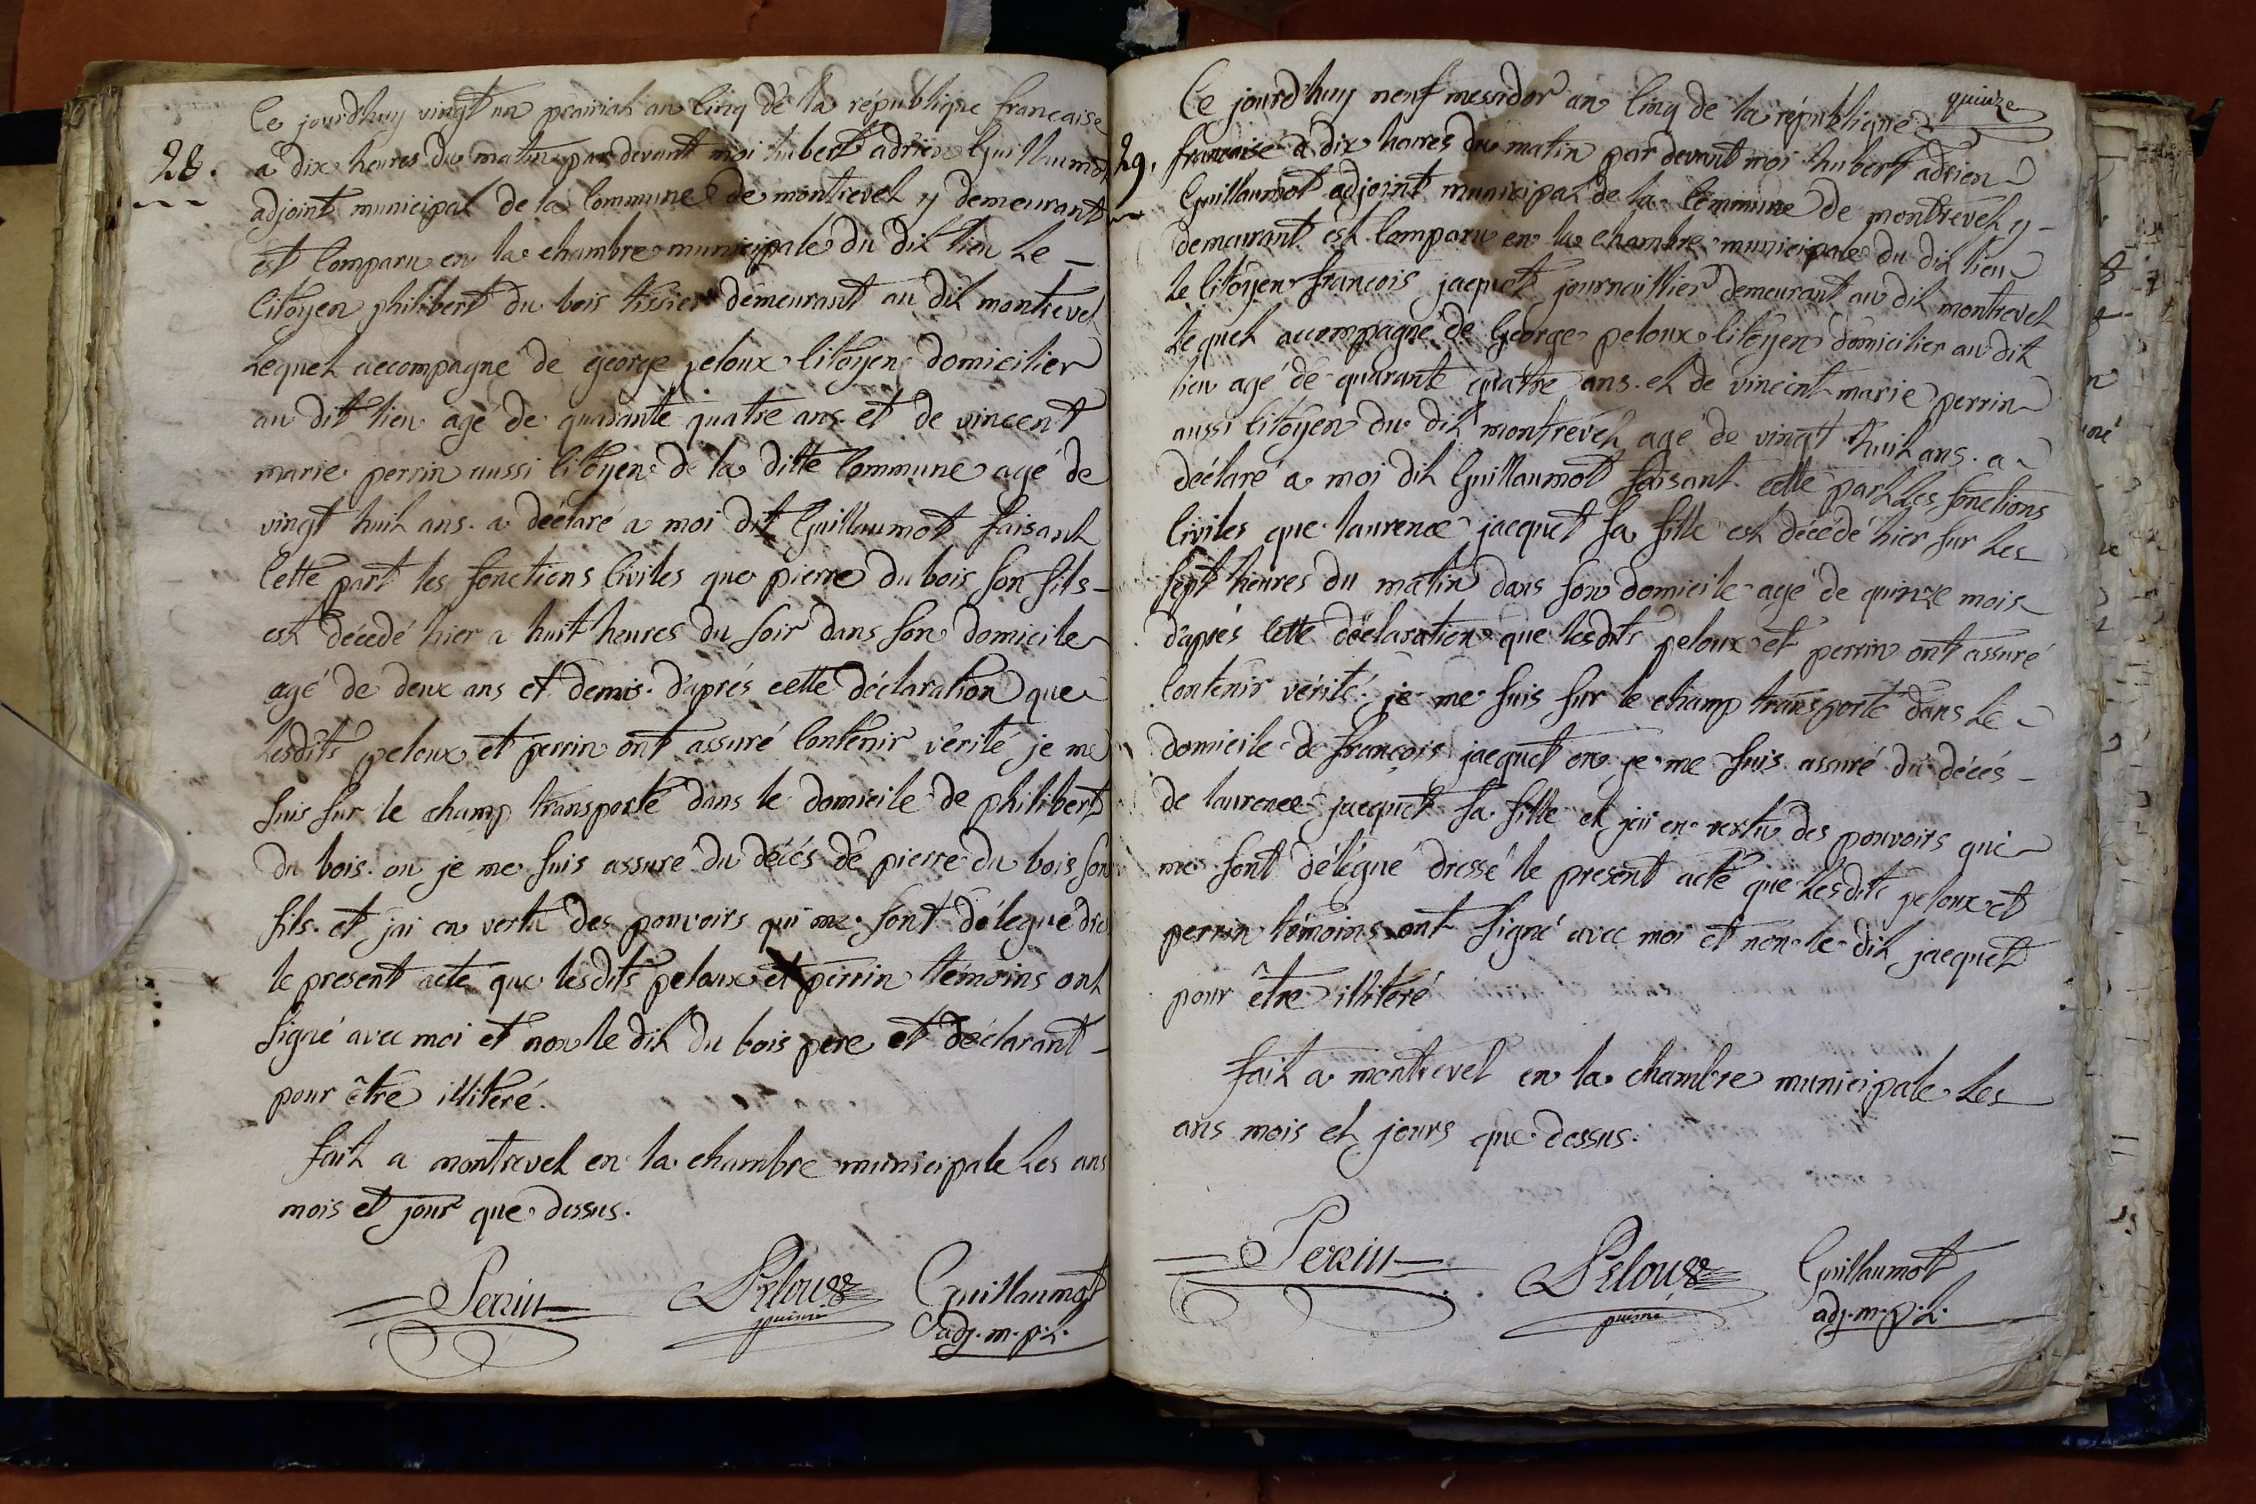 28.
Ce jourd'huy vingt un prairial an Cinq de la république francaise
a dix heures du matin par devant moi hubert adrien Guillaumot
adjoint municipal de la Commune de montrevel y demeurant
est Comparu en la chambre municipale du dit lieu le
Citoyen philibert du bois tissier demeurant au dit montrevel
lequel accompagné de george peloux Citoyen domicilier
au dit lieu agé de quarante quatre ans et de vincent
marie perrin aussi Citoyen de la ditte Commune agé de
vingt huit ans. a déclaré a moi dit Guillaumot faisant
Cette part les fonctions Civiles que pierre du bois son fils
est décedé hier a huit heures du soir dans son domicile
agé de deux ans et demis. d'aprés cette déclaration que
lesdits peloux et perrin ont assuré Contenir vérité je me
suis sur le champ transporté dans le domicile de philibert
du bois. ou je me suis assuré du décés de pierre du bois son
fils. et jai en vertu des pouvoirs qui me sont délegué
le present acte que lesdits peloux et perrin témoins ont
signé avec moi et non le dit du bois pere et déclarant
pour être illiteré.
fait a montrevel en la chambre municipale les ans
mois et jour que dessus.
Perrin Peloux Guillaumot
puisné adj. m. p. l.
quinze
29.
Ce jourd'huy neuf messidor an Cinq de la république
francaise a dix heures du matin par devant moi hubert adrien
Guillaumot adjoint municipal de la Commune de montrevel y
demeurant est Comparu en la chambre municipale du dit lieu
le Citoyen francois jacquet journaillier demeurant au dit montrevel
lequel accompagné de George peloux Citoyen domicilier au dit
lieu agé de quarante quatre ans. et de vincent marie perrin
aussi Citoyen du dit montrevel agé de vingt huit ans. a
déclaré a moi dit Guillaumot faisant cette part les fonctions
Civiles que laurence jacquet sa fille est décédé hier sur les
sept heures du matin dans son domicile agé de quinze mois
d'aprés Cette déclaration que lesdits peloux et perrin ont assuré
Contenir vérité. je me suis sur le champ transporté dans le
domicile de francois jacquet ou je me suis assuré du décés
de laurence jacquet sa fille et jai en vertu des pouvoirs qui
me sont délégué dressé le present acte que lesdits peloux et
perrin témoins ont signé avec moi et non le dit jacquet
pour être illiteré
fait a montrevel en la chambre municipale les
ans mois et jours que dessus.
Perrin Peloux Guillaumot
puisné adj. m. p. l.